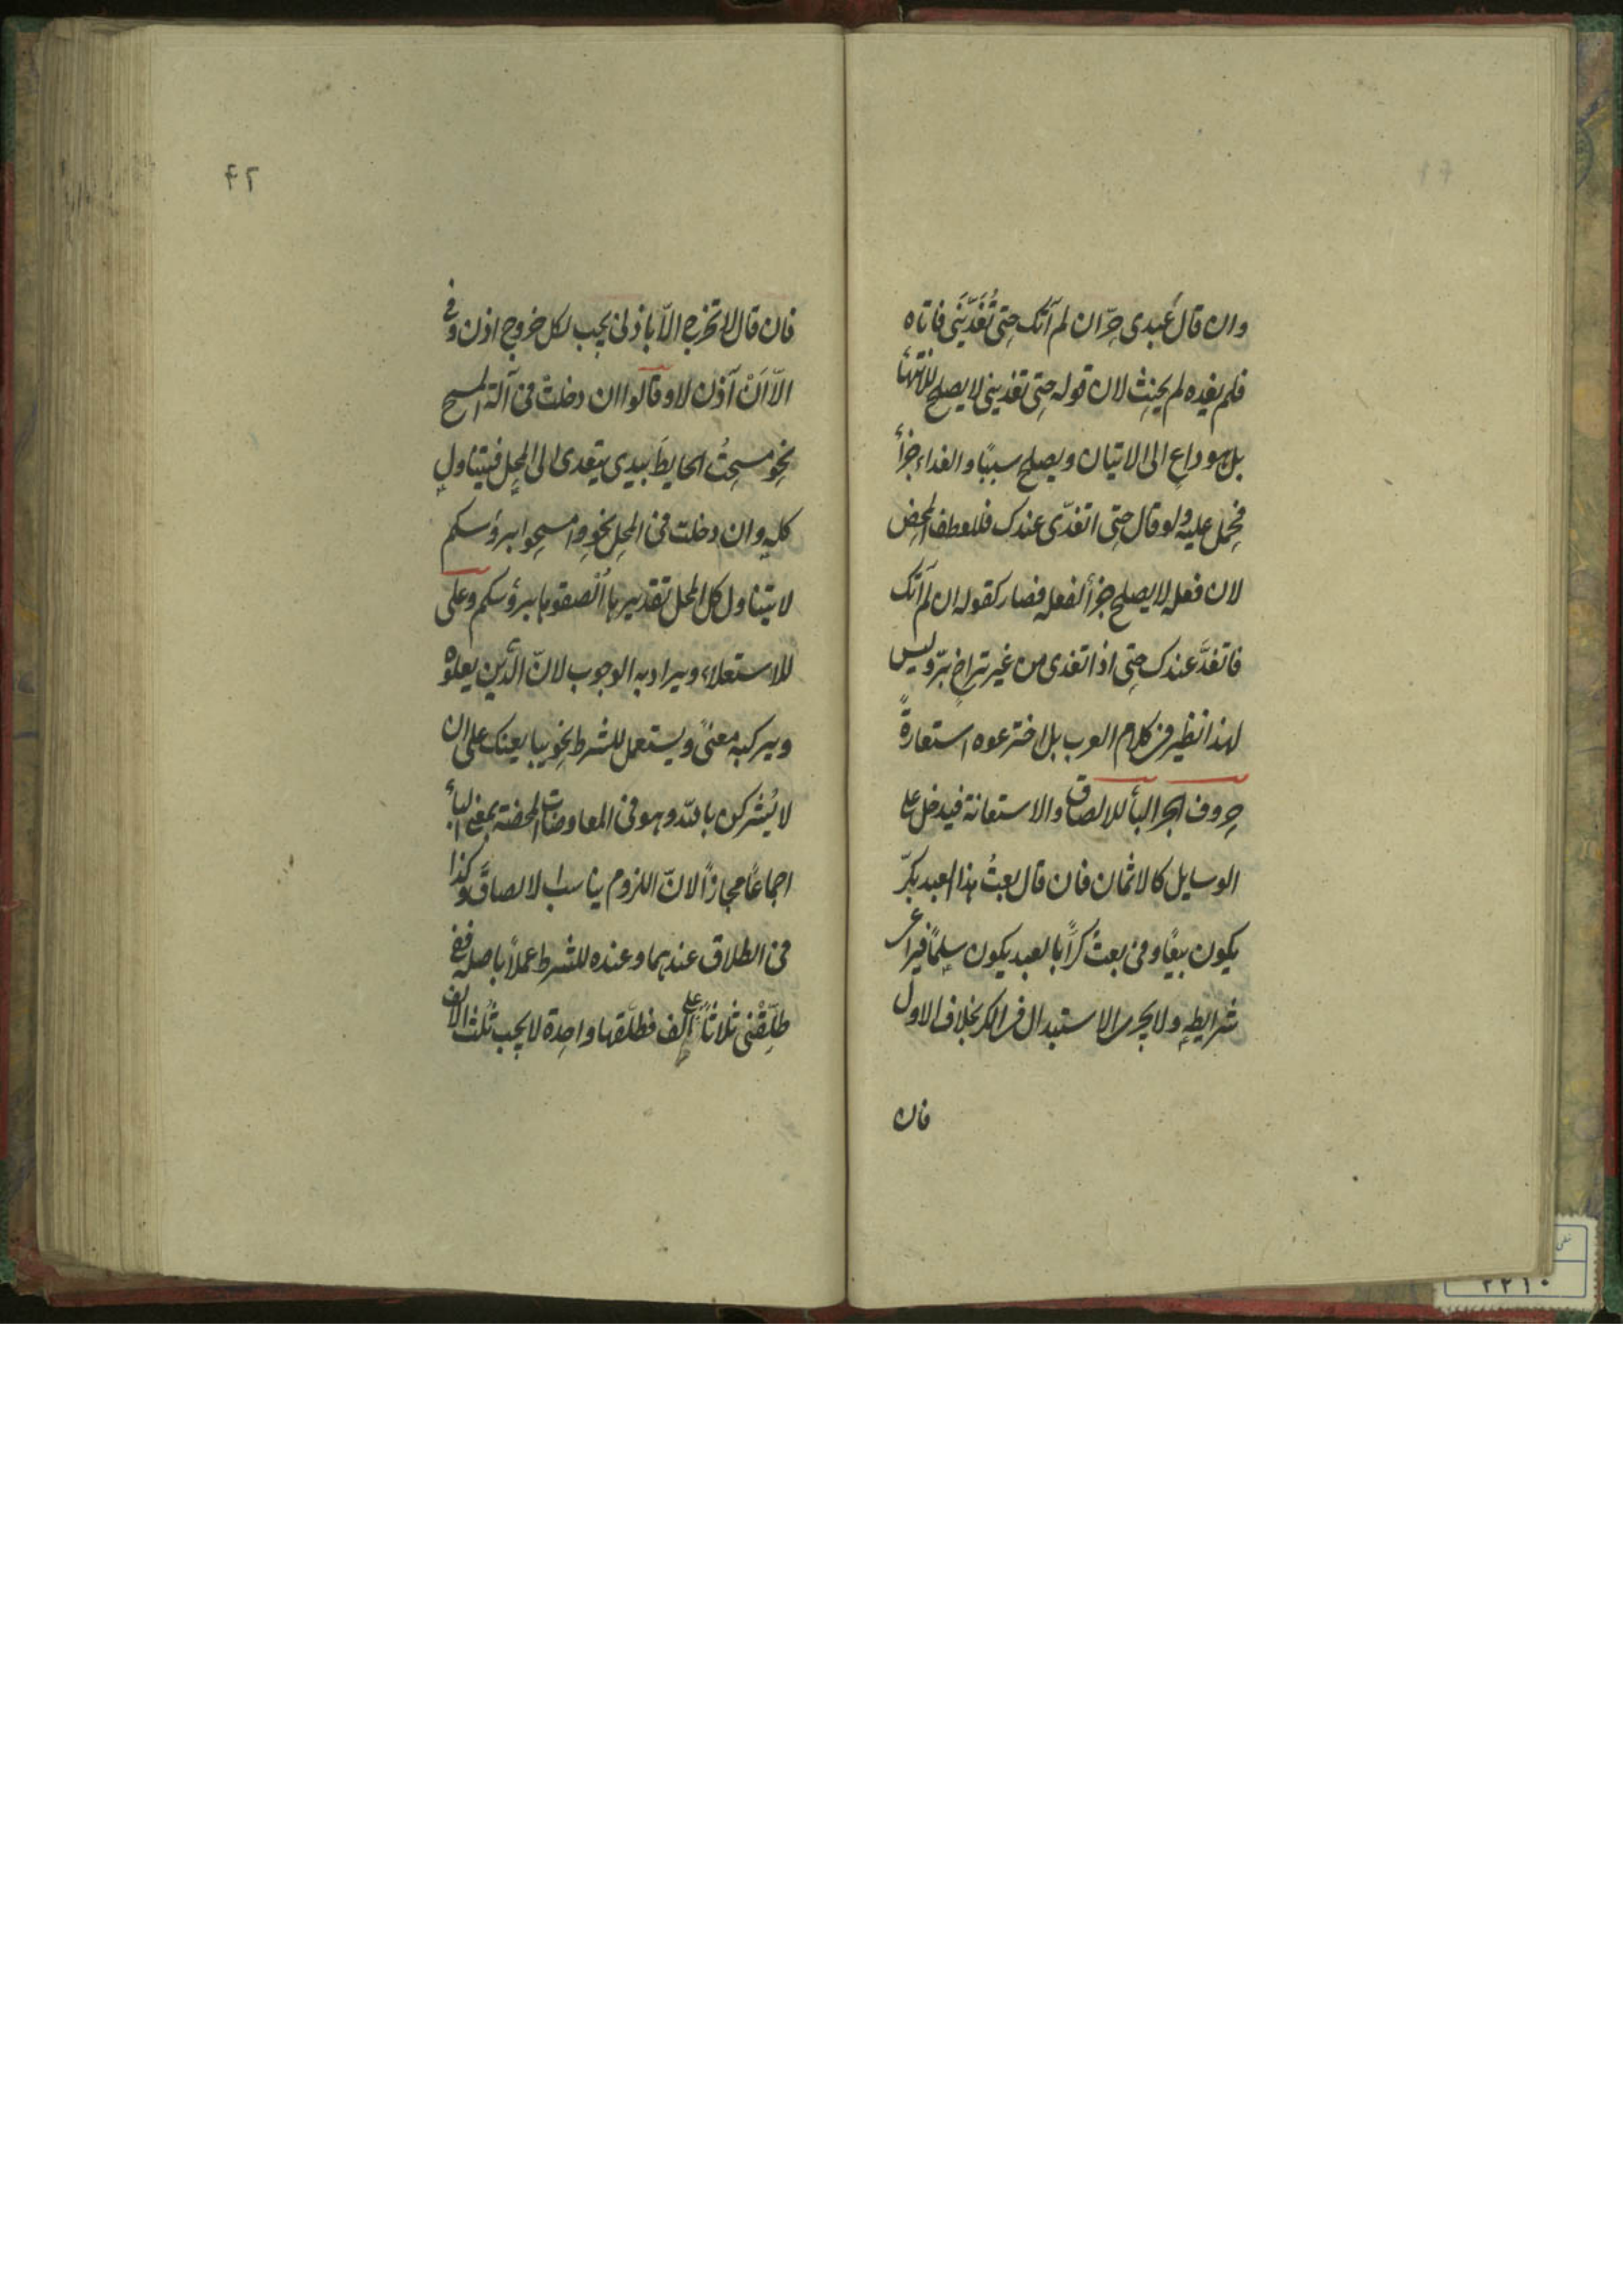 وان قال عبدى حرّ ان لم آتك حتى تُغَدّيَنى فاتاه
فلم يغده لم يحنث لان قوله حتى تغدينى لا يصلح للانتهاء
بل هو داعٍ الى الاتيان ويصلح سببًا والغداء جزأ
فحمل عليه ولو قال حتى اتغدّى عندك فللعطف المحض
لان فعله لا يصلح جزأ لفعله فصار كقوله ان لم آتك
فاتغدَّ عندك حتى اذا تغدى من غير تراخٍ برّ وليس
لهذا نظير فى كلام العرب بل اخترعوه استعارةً
حروف الجر البأ للالصاق والاستعانة فيدخل على
الوسايل كالاثمان فان قال بعتُ هذا العبد بكرّ
يكون بيعًا وفى بعتُ كرًّا بالعبد يكون سلمًا فيراعى
شرايطه ولا يجرى الاستبدال فى الكر بخلاف الاول
فان
٤٢
فان قال لا تخرج الّا باذنى يجب لكل خروج اذن وفى
الّا اَنْ آذن لا وقالوا ان دخلتْ فى آلة المسح
نحو مسحتُ الحايطَ بيدى يتعدى الى المحل فيتناول
كله وان دخلت فى المحل نحو وامسحوا برؤسكم
لا يتناول كل المحل تقديره الْصقوها برؤسكم وعلى
للاستعلاء ويراد به الوجوب لانّ الدَّين يعلوه
ويركبه معنىً ويستعمل للشرط نحو يبايعنك على ان
لا يُشركن بالله وهو فى المعاوضات المحضة بمعنى البأ
اجماعًا مجازًا لانّ اللزوم يناسب الالصاق وكذا
فى الطلاق عندهما وعنده للشرط عملًا باصله ففى
طلّقْنى ثلاثًا على الف فطلّقها واحدة لا يجب ثلث الالف
٢٢١٠